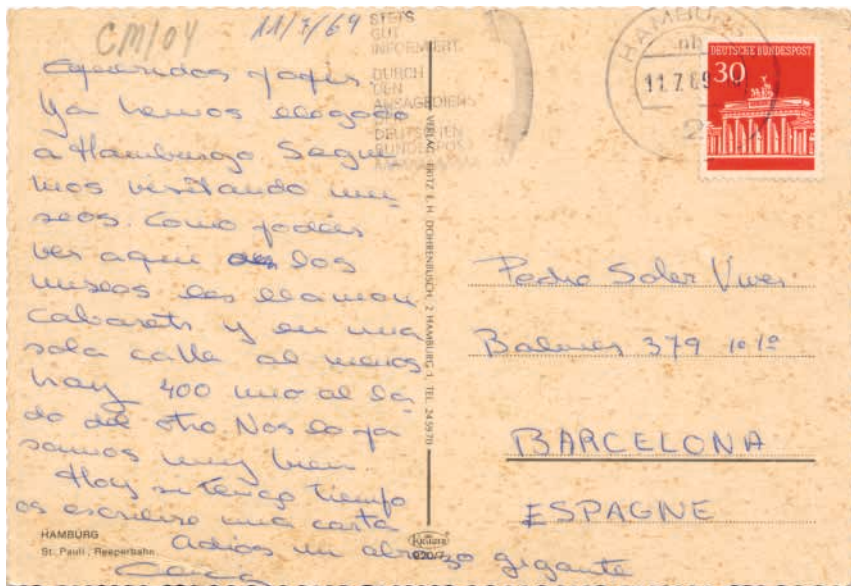 CM/04
11/7/69
STETS
GUT
INFORMIERT
DURCH
DEN
ANSAGEDIENST
DER
DEUTSCHEN
BUNDESPOST
HAMBURG
11.7.69
2
DEUTSCHE BUNDESPOST
30
queridos papis.
Ya hemos llegado
a Hamburgo. Segui
mos visitando mu-
seos. Como podeis
ver aqui los
museos les llaman
Cabarets y en una
sola calle al menos
hay 400 uno al la-
do del otro Nos lo pa
samos muy bien.
Hoy si tengo tiempo
os escribire una carta
Adios un abrazo gigante
VERLAG FRITZ E. H. DOHRENBUSCH, 2 HAMBURG 1, TEL. 24 59 70
Pedro Soler Vives
Balmes 379 1º 1ª
BARCELONA
ESPAGNE
HAMBURG
St. Pauli, Reeperbahn
Krüger
920/7